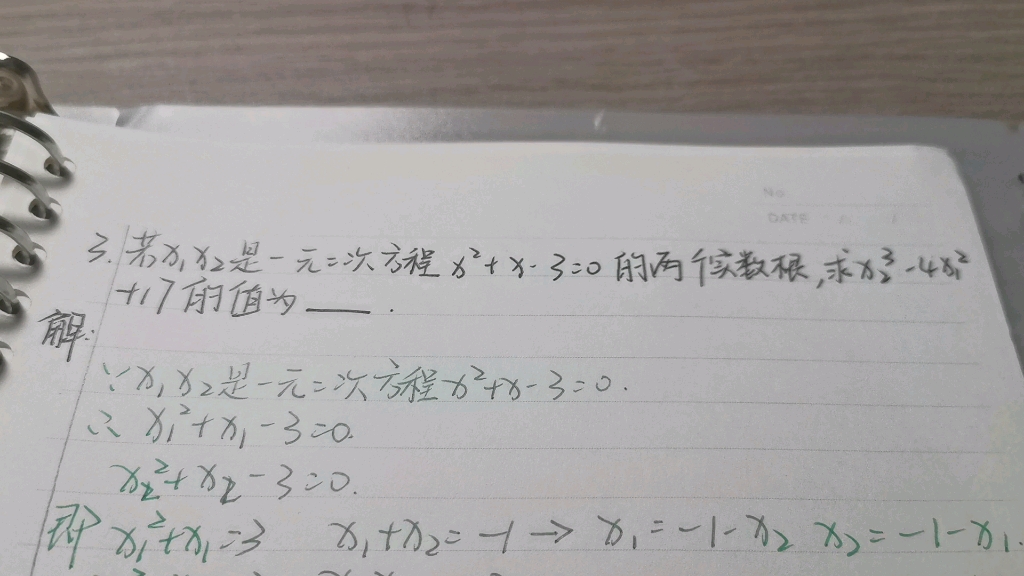 No
DATE
3. 若x₁x₂是一元二次方程 x²+x-3=0 的两个实数根,求x₂³-4x₁²
+17的值为 ____ .
解:
∵x₁x₂是一元二次方程x²+x-3=0.
∴ x₁²+x₁-3=0.
x₂²+x₂-3=0.
即 x₁²+x₁=3 x₁+x₂=-1 → x₁=-1-x₂ x₂=-1-x₁.